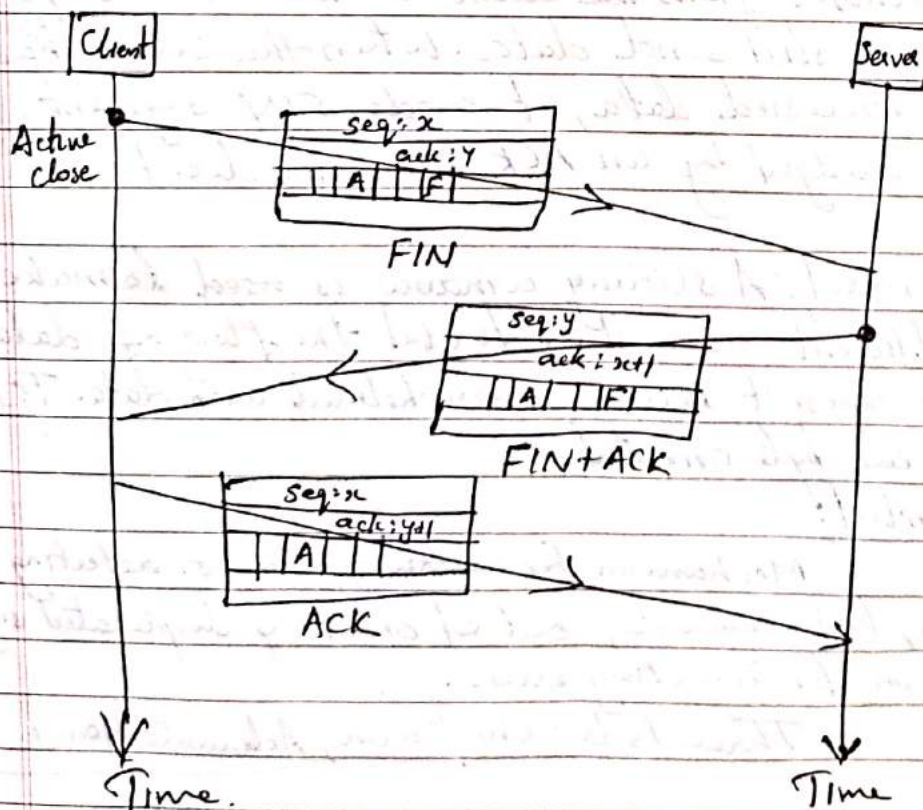 Client
Server
Active
close
seq: x
ack: y
A F
FIN
seq: y
ack: x+1
A F
FIN+ACK
seq: x
ack: y+1
A
ACK
Time.
Time